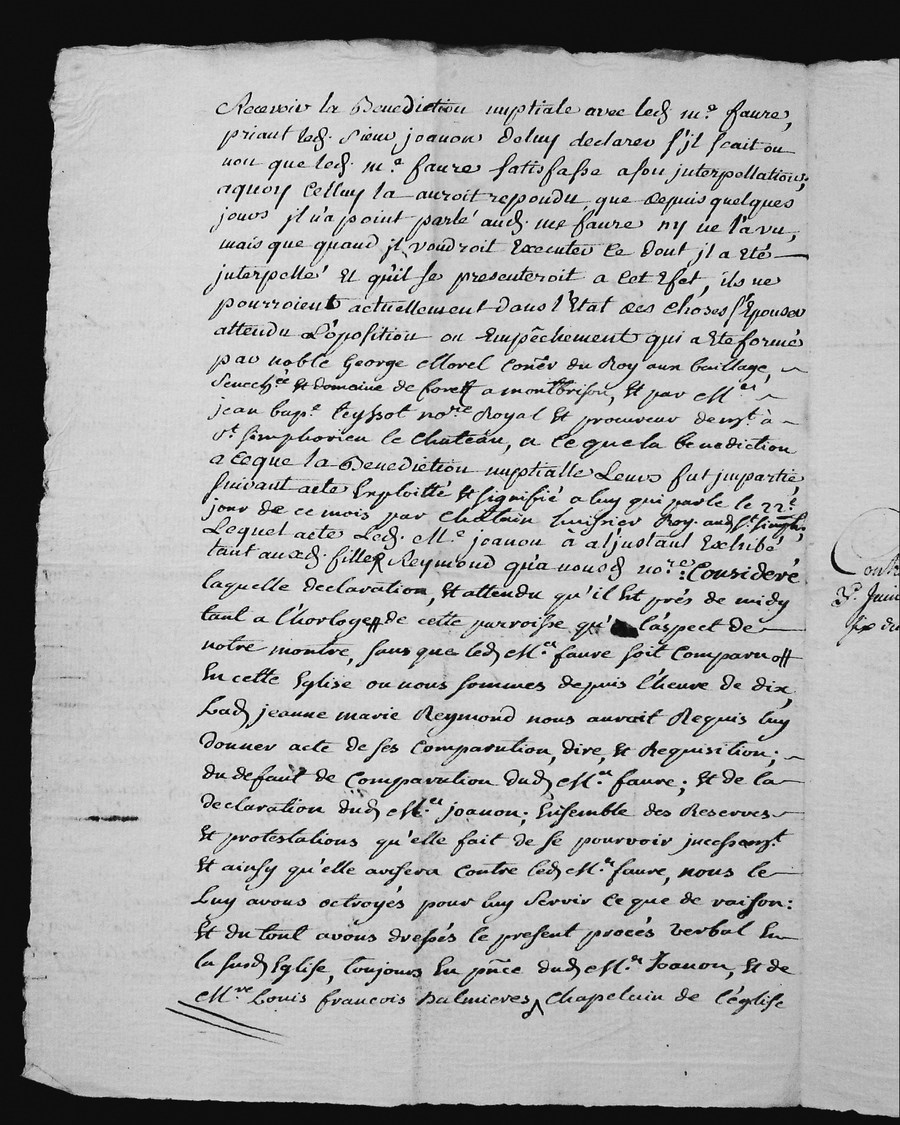 Recevoir la Benediction nuptiale avec led. m.e faure,
priant led. Sieur joanon de luy declarer s'jl scait ou
non que led. m.e faure satisfasse a son jnterpellation;
aquoy Celluy la auroit repondu que depuis quelques
jours jl n'a point parlé aud. me faure ny ne l'a vu,
mais que quand jl voudroit Executer ce dont jl a eté
jnterpellé Et qu'il se presenteroit a cet Efet, ils ne
pourroient actuellement dans l'Etat des choses s'Epouser
attendu L'oposition ou Empêchement qui a eté formé
par noble George Morel Coner du Roy aux bailliage,
Senechée Et domaine de foret a montbrison, Et par M.e
jean bap.e teyssot no.re Royal Et procureur demt. à
st. simphorien le chateau, a ce que la benediction
a ce que la Benediction nuptialle Leurs fut jmpartie
suivant acte Exploitté Et signifié a luy qui parle le 22.e
jour de ce mois par Chatain huissier Roy. aud. st. simph.
Lequel acte Led. M.e joanon a a l'jnstant Exhibé
tant auxd. filles Reymond qu'a nousd. no.re: Consideré
laquelle declaration, Et attendu qu'il Est prés de midy
tant a l'horloge de cette parroisse qu'a l'aspect de
notre montre, sans que led. M.e faure soit Comparu
En cette Eglise ou nous sommes depuis l'heure de dix,
Lad. jeanne marie Reymond nous auroit Requis luy
donner acte de ses Comparution, dire, Et Requisition;
du defaut de Comparution dud. M.e faure; Et de la
declaration dud. M.e joanon; Ensemble des Reserves
Et protestations qu'elle fait de se pourvoir jncessamt.
Et ainsy qu'elle avisera contre led. M.e faure, nous le
Luy avons octroyés pour luy servir ce que de raison:
Et du tout avons dressés le present procés verbal En
la susd. Eglise, toujours En pnce dud. M.e Joanon, Et de
M.re Louis francois Dalmieres chapelain de l'église